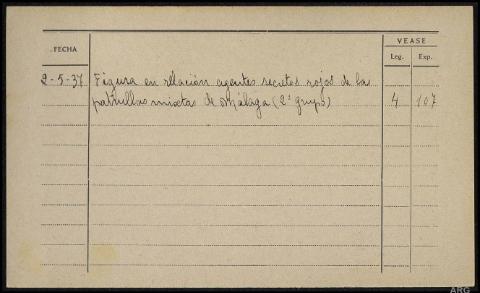 FECHA
VEASE
Leg. Exp.
2-5-37 Figura en relación agentes secretos rojos de las
patrullas mixtas de Málaga (2º grupo) 4 107
ARG